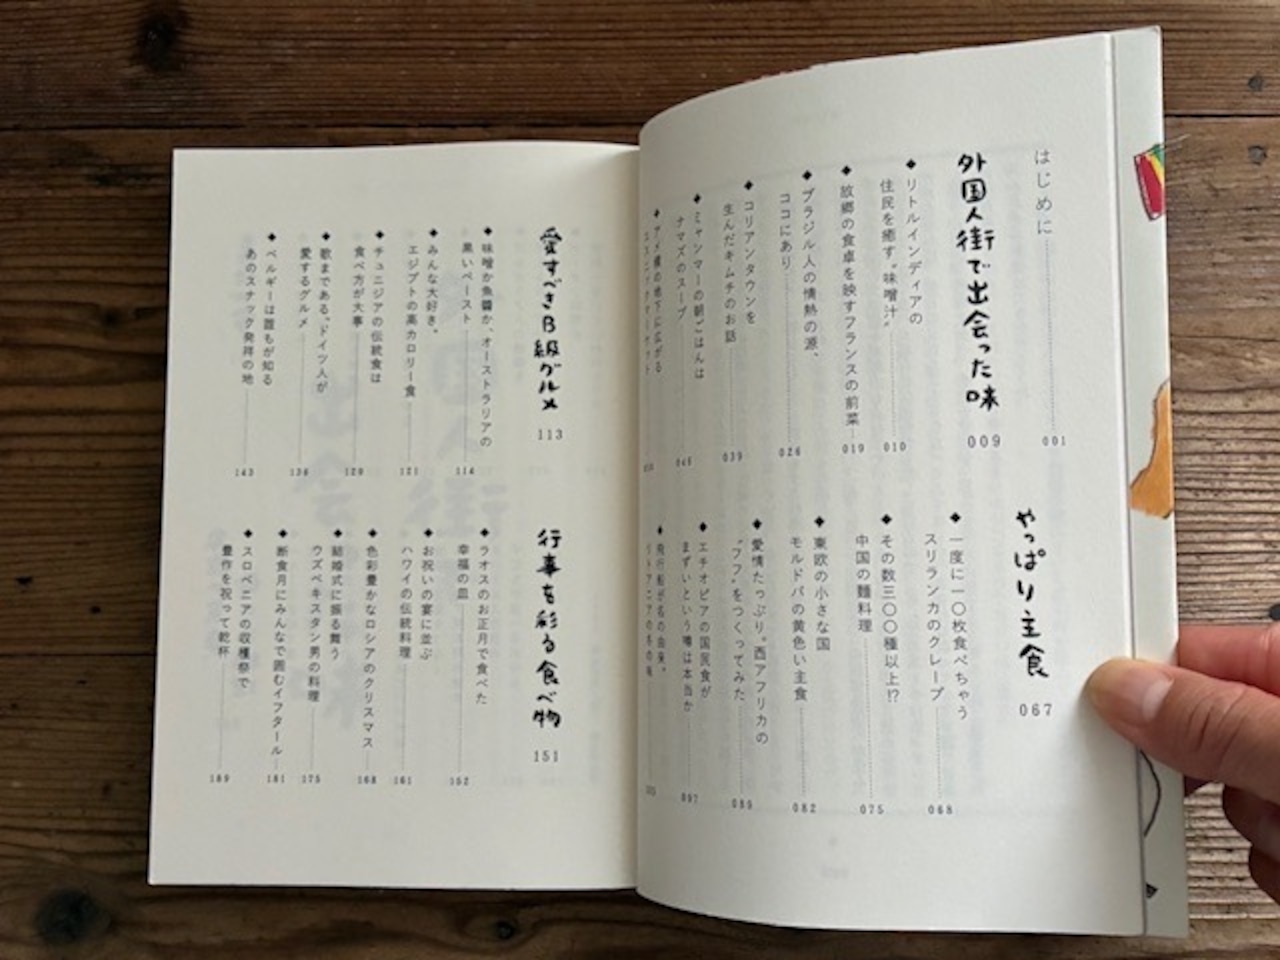 はじめに 001
外国人街で出会った味 009
◆リトルインディアの
住民を癒す〝味噌汁〟 010
◆故郷の食卓を映すフランスの前菜 019
◆ブラジル人の情熱の源、
ココにあり 026
◆コリアンタウンを
生んだキムチのお話 039
◆ミャンマーの朝ごはんは
ナマズのスープ 046
◆アメ横の地下に広がる
エスニックマーケット
やっぱり主食 067
◆一度に一〇枚食べちゃう
スリランカのクレープ 068
◆その数三〇〇種以上!?
中国の麺料理 075
◆東欧の小さな国
モルドバの黄色い主食 082
◆愛情たっぷり。西アフリカの
〝フフ〟をつくってみた 089
◆エチオピアの国民食が
まずいという噂は本当か 097
◆飛行船が名の由来。
リトアニアの冬の味
愛すべきB級グルメ 113
◆味噌か魚醤か、オーストラリアの
黒いペースト 114
◆みんな大好き。
エジプトの高カロリー食 121
◆チュニジアの伝統食は
食べ方が大事 129
◆歌まである、ドイツ人が
愛するグルメ 136
◆ベルギーは誰もが知る
あのスナック発祥の地 143
行事を彩る食べ物 151
◆ラオスのお正月で食べた
幸福の皿 152
◆お祝いの宴に並ぶ
ハワイの伝統料理 161
◆色彩豊かなロシアのクリスマス 168
◆結婚式に振る舞う
ウズベキスタン男の料理 175
◆断食月にみんなで囲むイフタール 181
◆スロベニアの収穫祭で
豊作を祝って乾杯 189